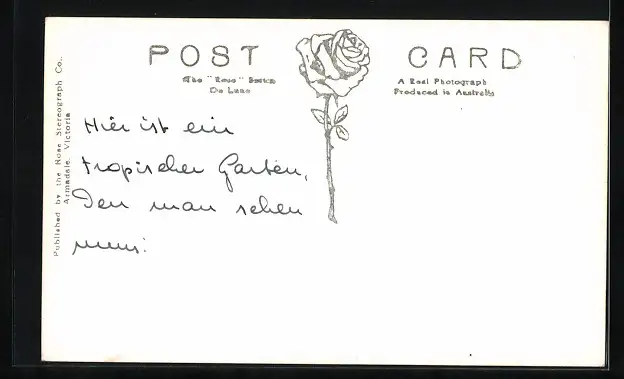 POST CARD
The "Rose" Series
De Luxe
A Real Photograph
Produced in Australia
Published by the Rose Stereograph Co.,
Armadale, Victoria
Hier ist ein
tropischer Garten,
Den man sehen
muss!